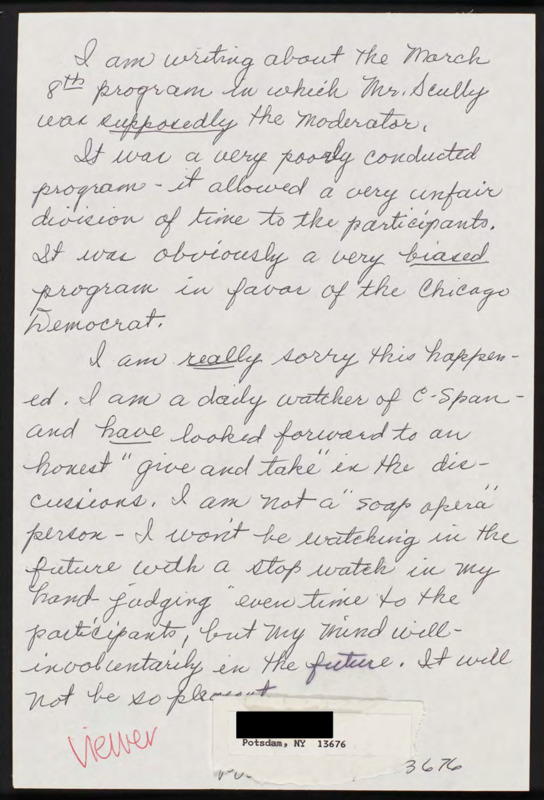 I am writing about the March
8th program in which Mr. Scully
was supposedly the moderator.
It was a very poorly conducted
program - it allowed a very unfair
division of time to the participants.
It was obviously a very biased
program in favor of the Chicago
Democrat.
I am really sorry this happen-
ed. I am a daily watcher of C-Span -
and have looked forward to an
honest "give and take" in the dis-
cussions. I am not a "soap opera"
person - I won't be watching in the
future with a stop watch in my
hand judging "even time to the
participants, but my mind will -
involuentarily in the future. It will
not be so pleasant
viewer
Potsdam, NY 13676
3676